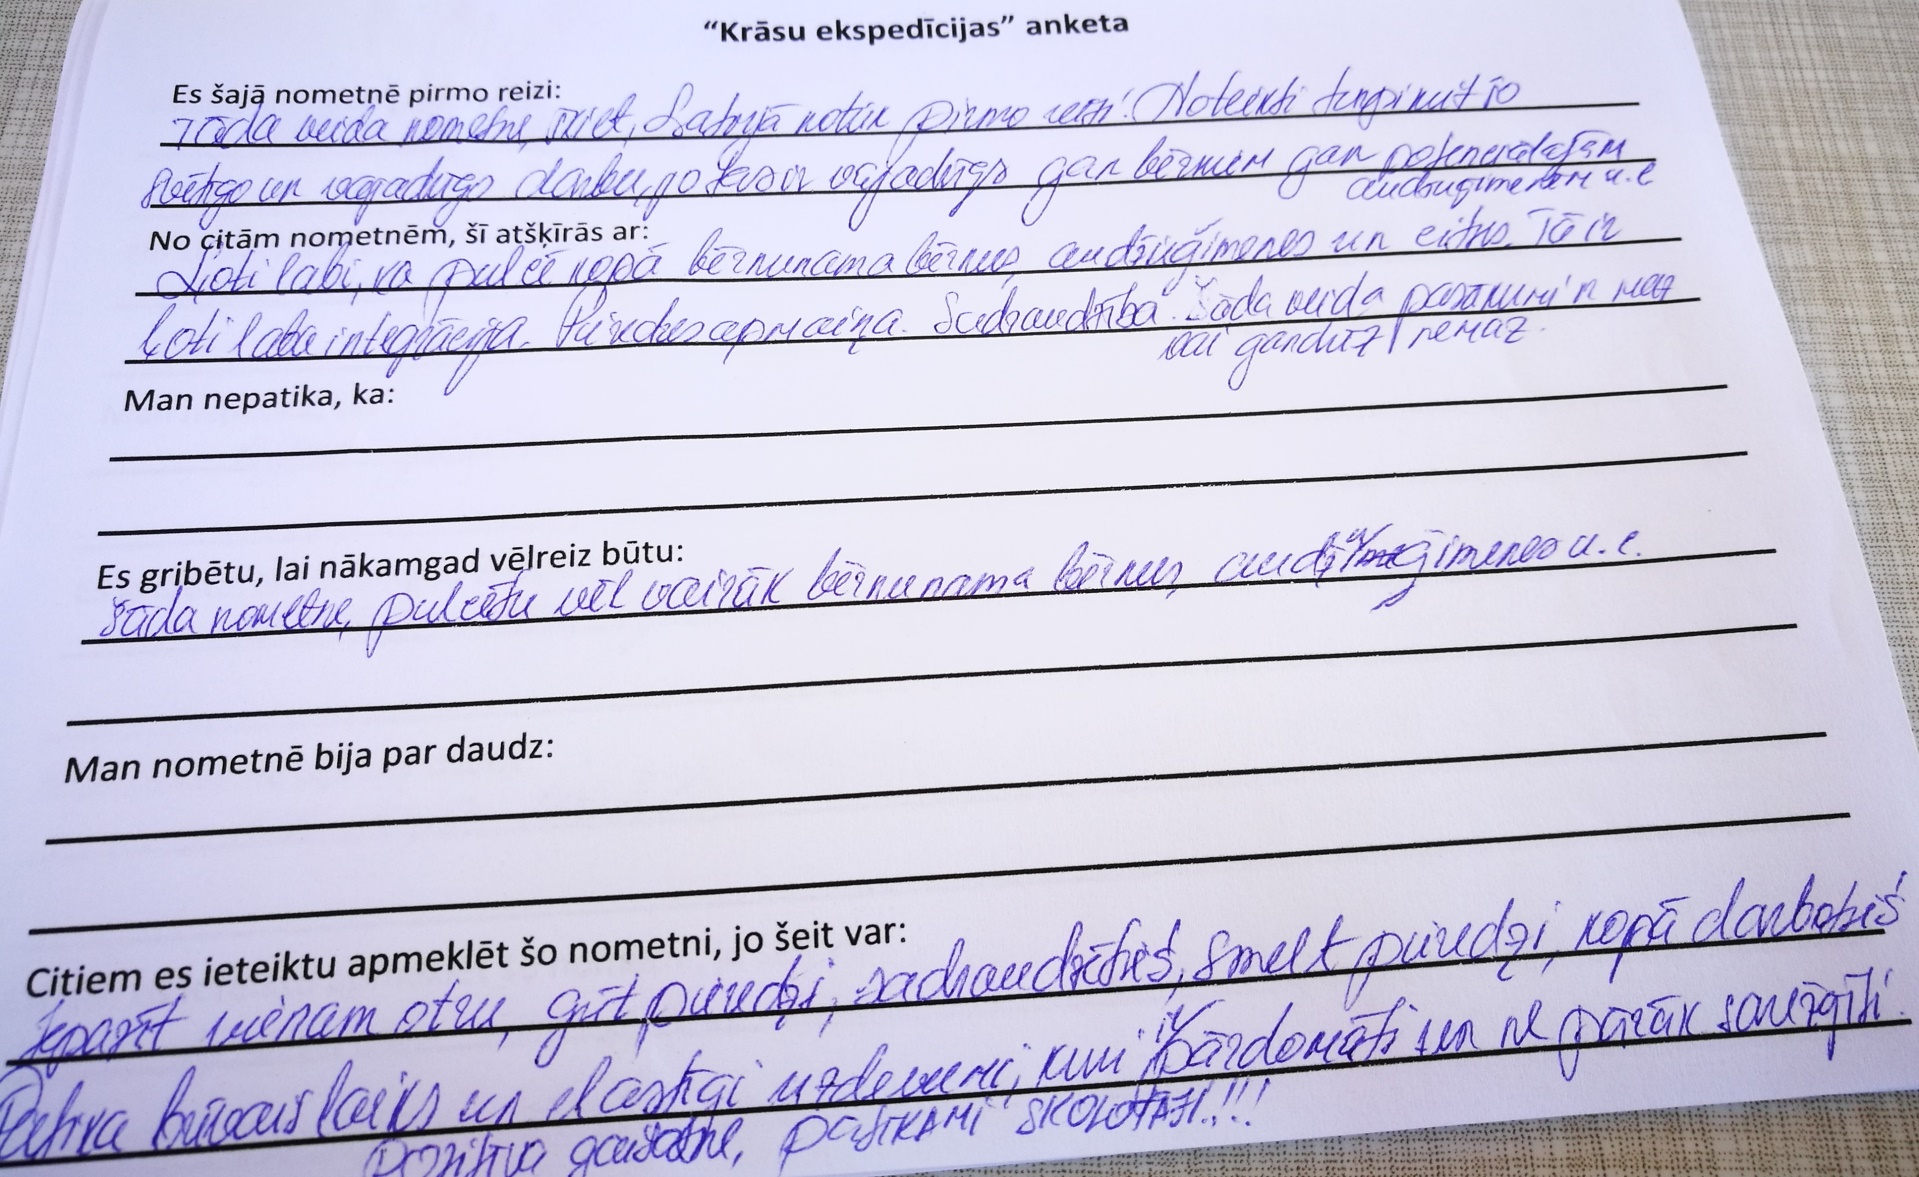 “Krāsu ekspedīcijas” anketa
Es šajā nometnē pirmo reizi:
Tāda veida nometne, šķiet, Latvijā notiek pirmo reizi! Noteikti turpināt šo
svētīgo un vajadzīgo darbu, jo tas ir vajadzīgs gan bērniem gan potenciālajām
audžuģimenēm u.c
No citām nometnēm, šī atšķīrās ar:
Ļoti labi, ka pulcē kopā bērnunama bērnus, audžuģimenes un citus. Tā ir
ļoti laba integrācija. Pieredzes apmaiņa. Sadraudzība. Šāda veida pasākumi ir maz
vai gandrīz nemaz.
Man nepatika, ka:
Es gribētu, lai nākamgad vēlreiz būtu:
Šāda nometne, pulcētu vēl vairāk bērnunama bērnus, audžuģimenes u.c.
Man nometnē bija par daudz:
Citiem es ieteiktu apmeklēt šo nometni, jo šeit var:
Iepazīt vienam otru, gūt pieredzi, sadraudzēties, smelt pieredzi, kopā darboties
brīvais laiks un elastīgi uzdevumi, kuri ir pārdomāti un ne pārāk sarežģīti.
Pozitīva gaisotne, PATĪKAMI SKOLOTĀJI!!!